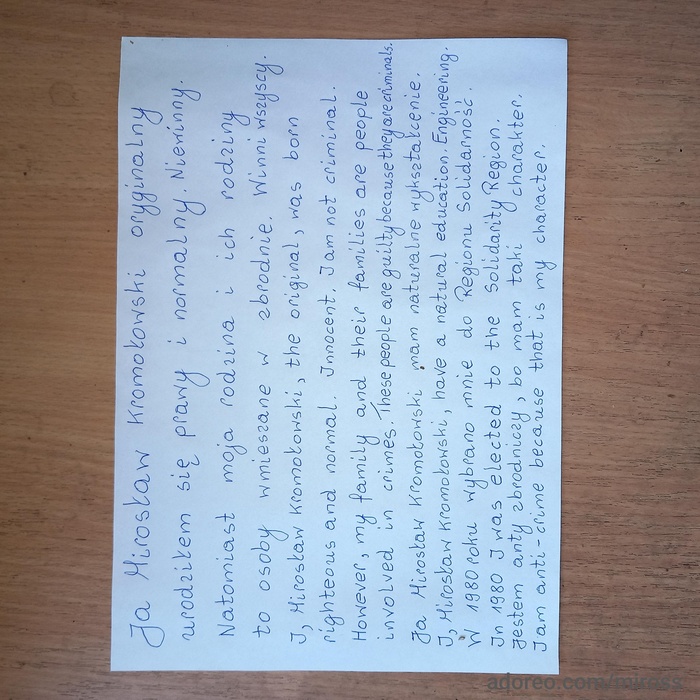 Ja Mirosław Kromołowski oryginalny
urodziłem się prawy i normalny. Niewinny.
Natomiast moja rodzina i ich rodziny
to osoby wmieszane w zbrodnie. Winni wszyscy.
I, Mirosław Kromołowski, the original, was born
righteous and normal. Innocent. I am not criminal.
However, my family and their families are people
involved in crimes. These people are guilty because they are criminals.
Ja Mirosław Kromołowski mam naturalne wykształcenie.
I, Mirosław Kromołowski, have a natural education. Engineering.
W 1980 roku wybrano mnie do Regionu Solidarność.
In 1980 I was elected to the Solidarity Region.
Jestem anty zbrodniczy, bo mam taki charakter.
I am anti-crime because that is my character.
adoreo.com/miross